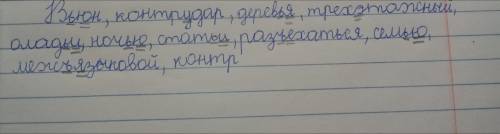 Вьюн, контрудар, деревья, трехэтажный,
оладьи, ночью, статьи, разъехаться, семью,
межъязыковой, контр